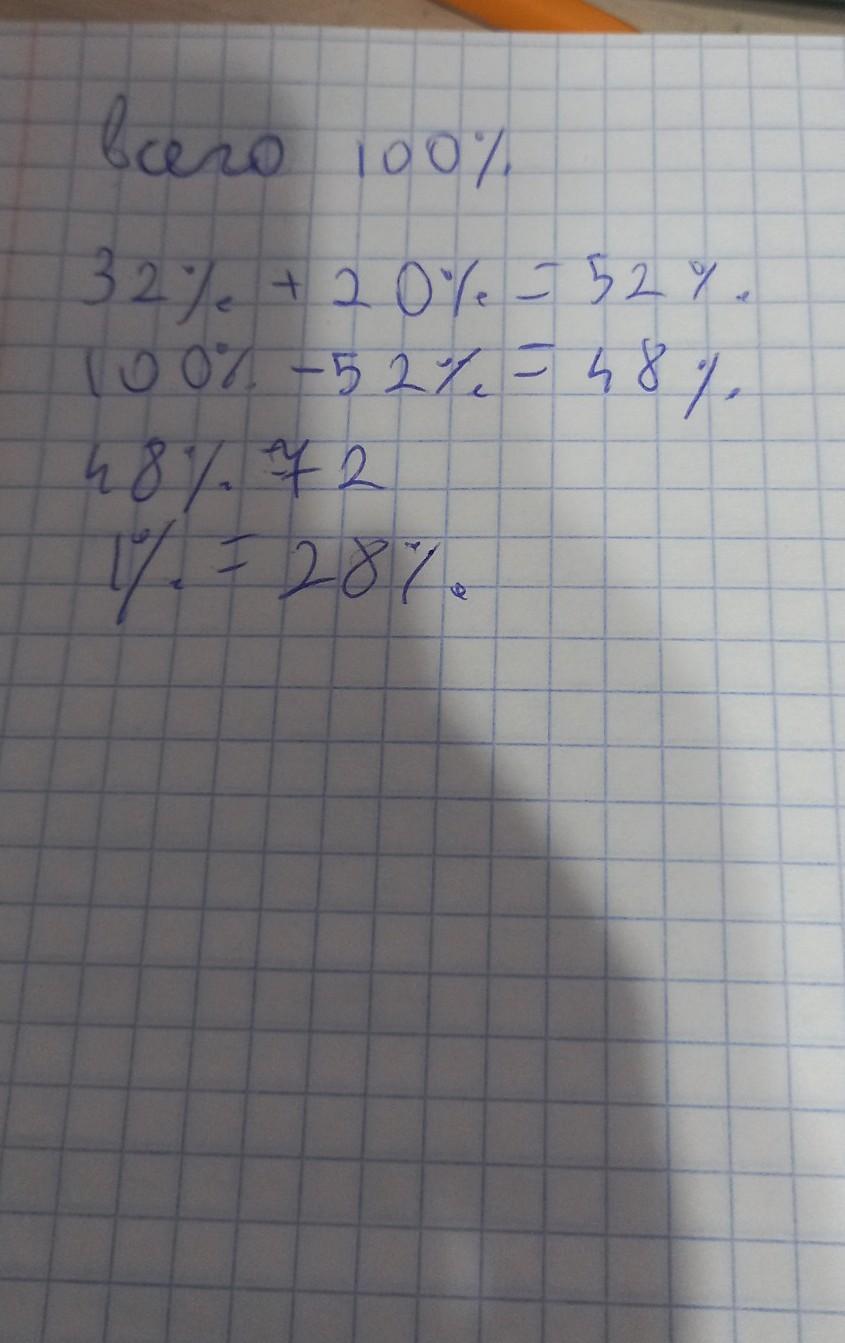 всего 100%
32% + 20% = 52%.
100% - 52% = 48%.
48% = 72
1% = 28%.